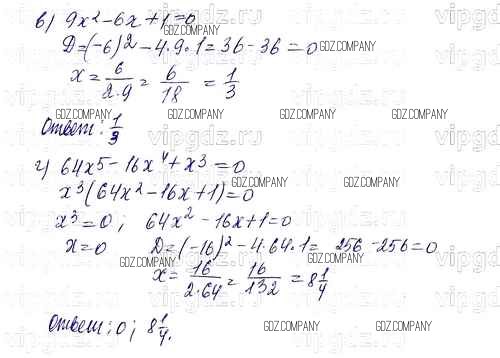 в) 9x² - 6x + 1 = 0
D = (-6)² - 4·9·1 = 36 - 36 = 0
x = 6/2·9 = 6/18 = 1/3
Ответ: 1/3
г) 64x⁵ - 16x⁴ + x³ = 0
x³(64x² - 16x + 1) = 0
x³ = 0; 64x² - 16x + 1 = 0
x = 0 D = (-16)² - 4·64·1 = 256 - 256 = 0
x = 16/2·64 = 16/132 = 8 1/4
Ответ: 0; 8 1/4.
vipgdz.ru
GDZ.COMPANY